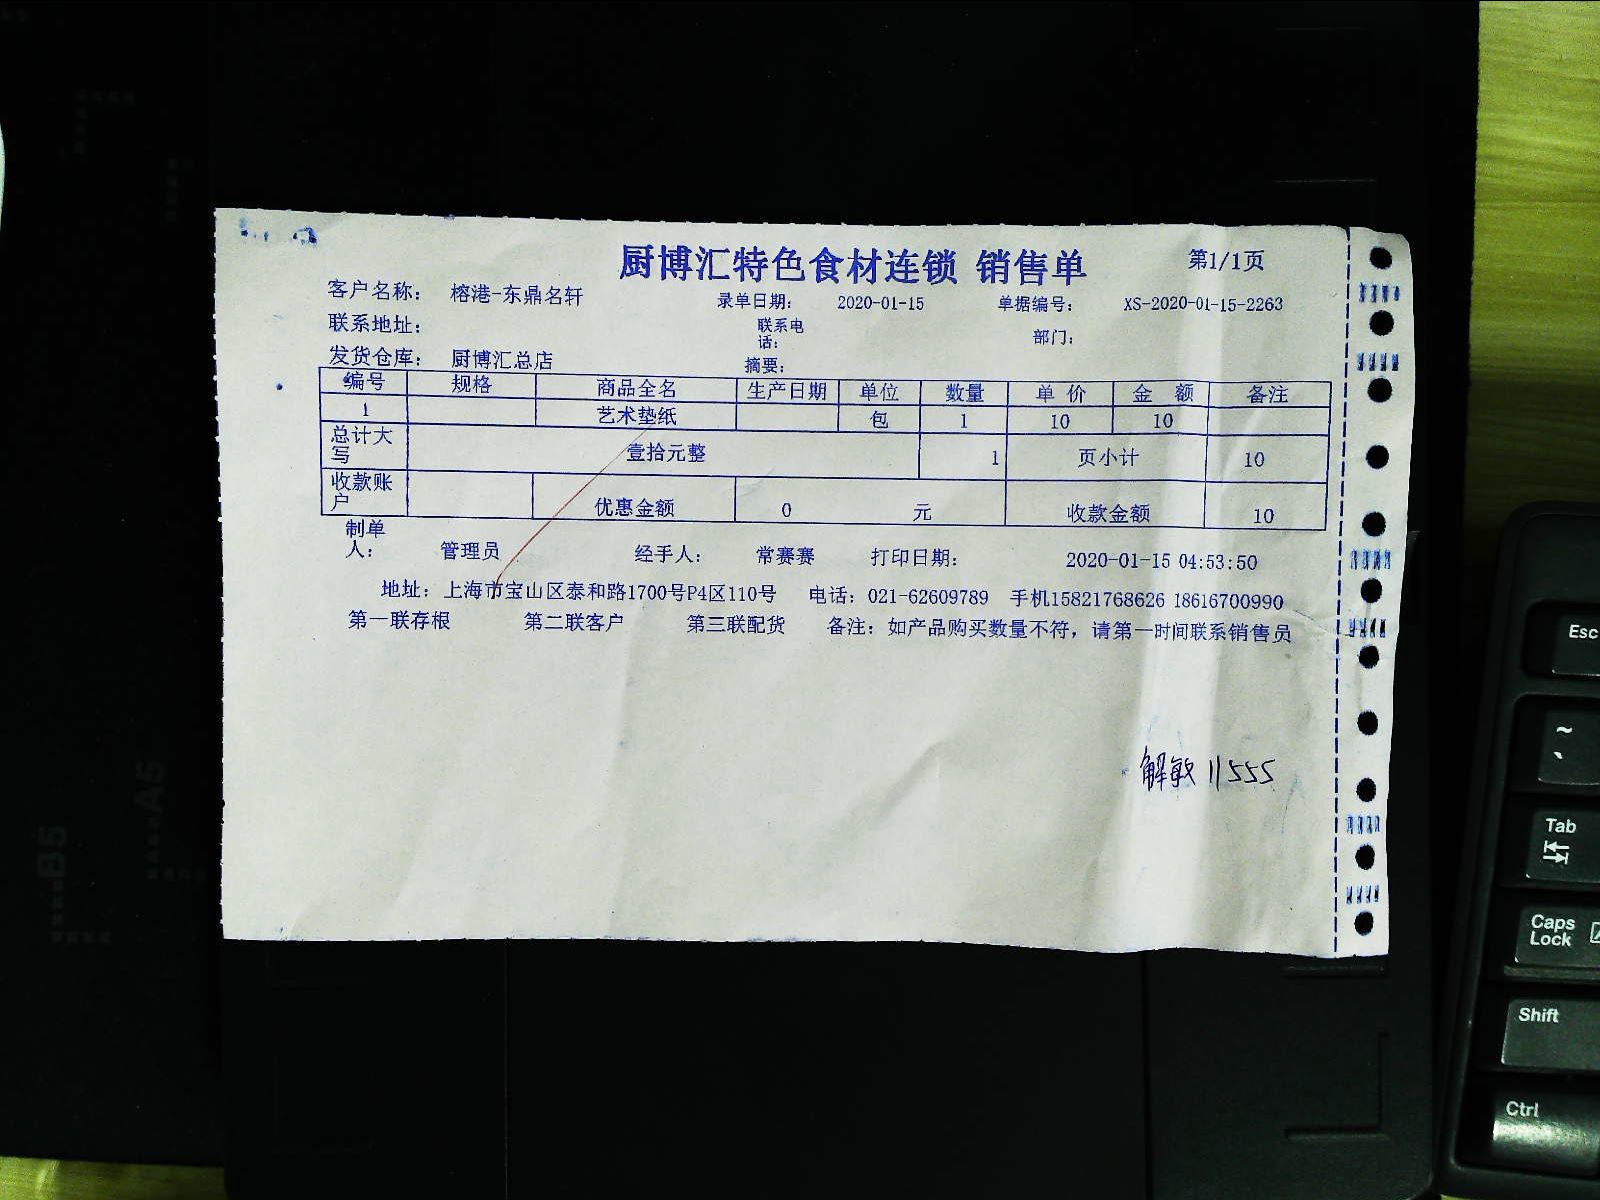 厨博汇特色食材连锁 销售单 第1/1页
客户名称： 榕港-东鼎名轩 录单日期： 2020-01-15 单据编号： XS-2020-01-15-2263
联系地址： 联系电话： 部门：
发货仓库： 厨博汇总店 摘要：
编号 规格 商品全名 生产日期 单位 数量 单价 金额 备注
1 艺术垫纸 包 1 10 10
总计大写 壹拾元整 1 页小计 10
收款账户 优惠金额 0 元 收款金额 10
制单人： 管理员 经手人： 常赛赛 打印日期： 2020-01-15 04:53:50
地址：上海市宝山区泰和路1700号P4区110号 电话：021-62609789 手机15821768626 18616700990
第一联存根 第二联客户 第三联配货 备注：如产品购买数量不符，请第一时间联系销售员
解敏 11555
B5
A5
Esc
~
Tab
Caps Lock
Shift
Ctrl